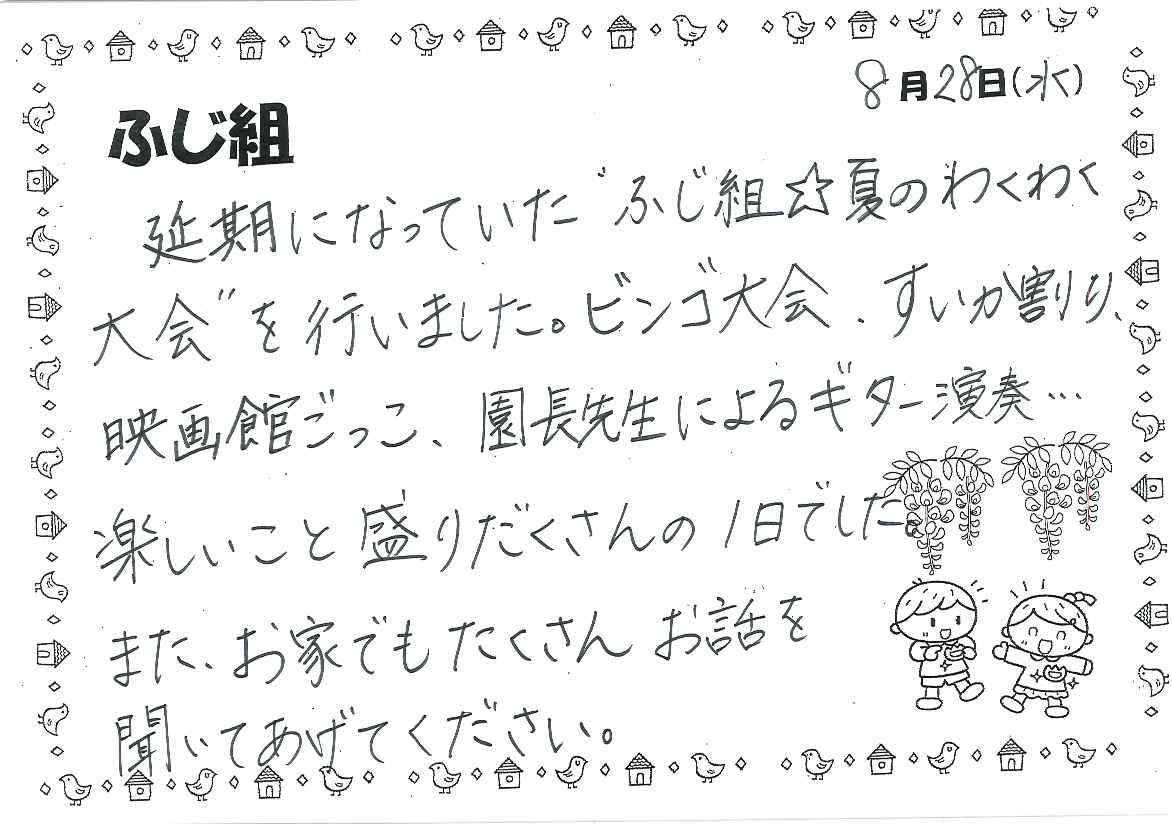 8月28日(水)
ふじ組
延期になっていた“ふじ組☆夏のわくわく
大会”を行いました。ビンゴ大会、すいか割り、
映画館ごっこ、園長先生によるギター演奏…
楽しいこと盛りだくさんの1日でした。
また、お家でもたくさんお話を
聞いてあげてください。